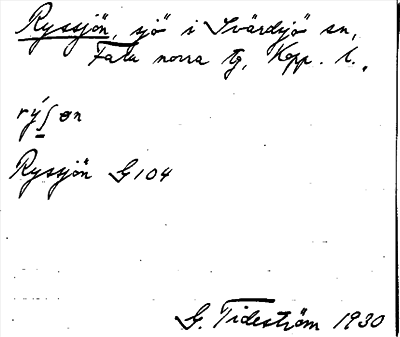 Ryssjön, sjö i Svärdsjö sn,
Falu norra tg, Kopp. l.
rý∫øn
Ryssjön G104
G. Tideström 1930